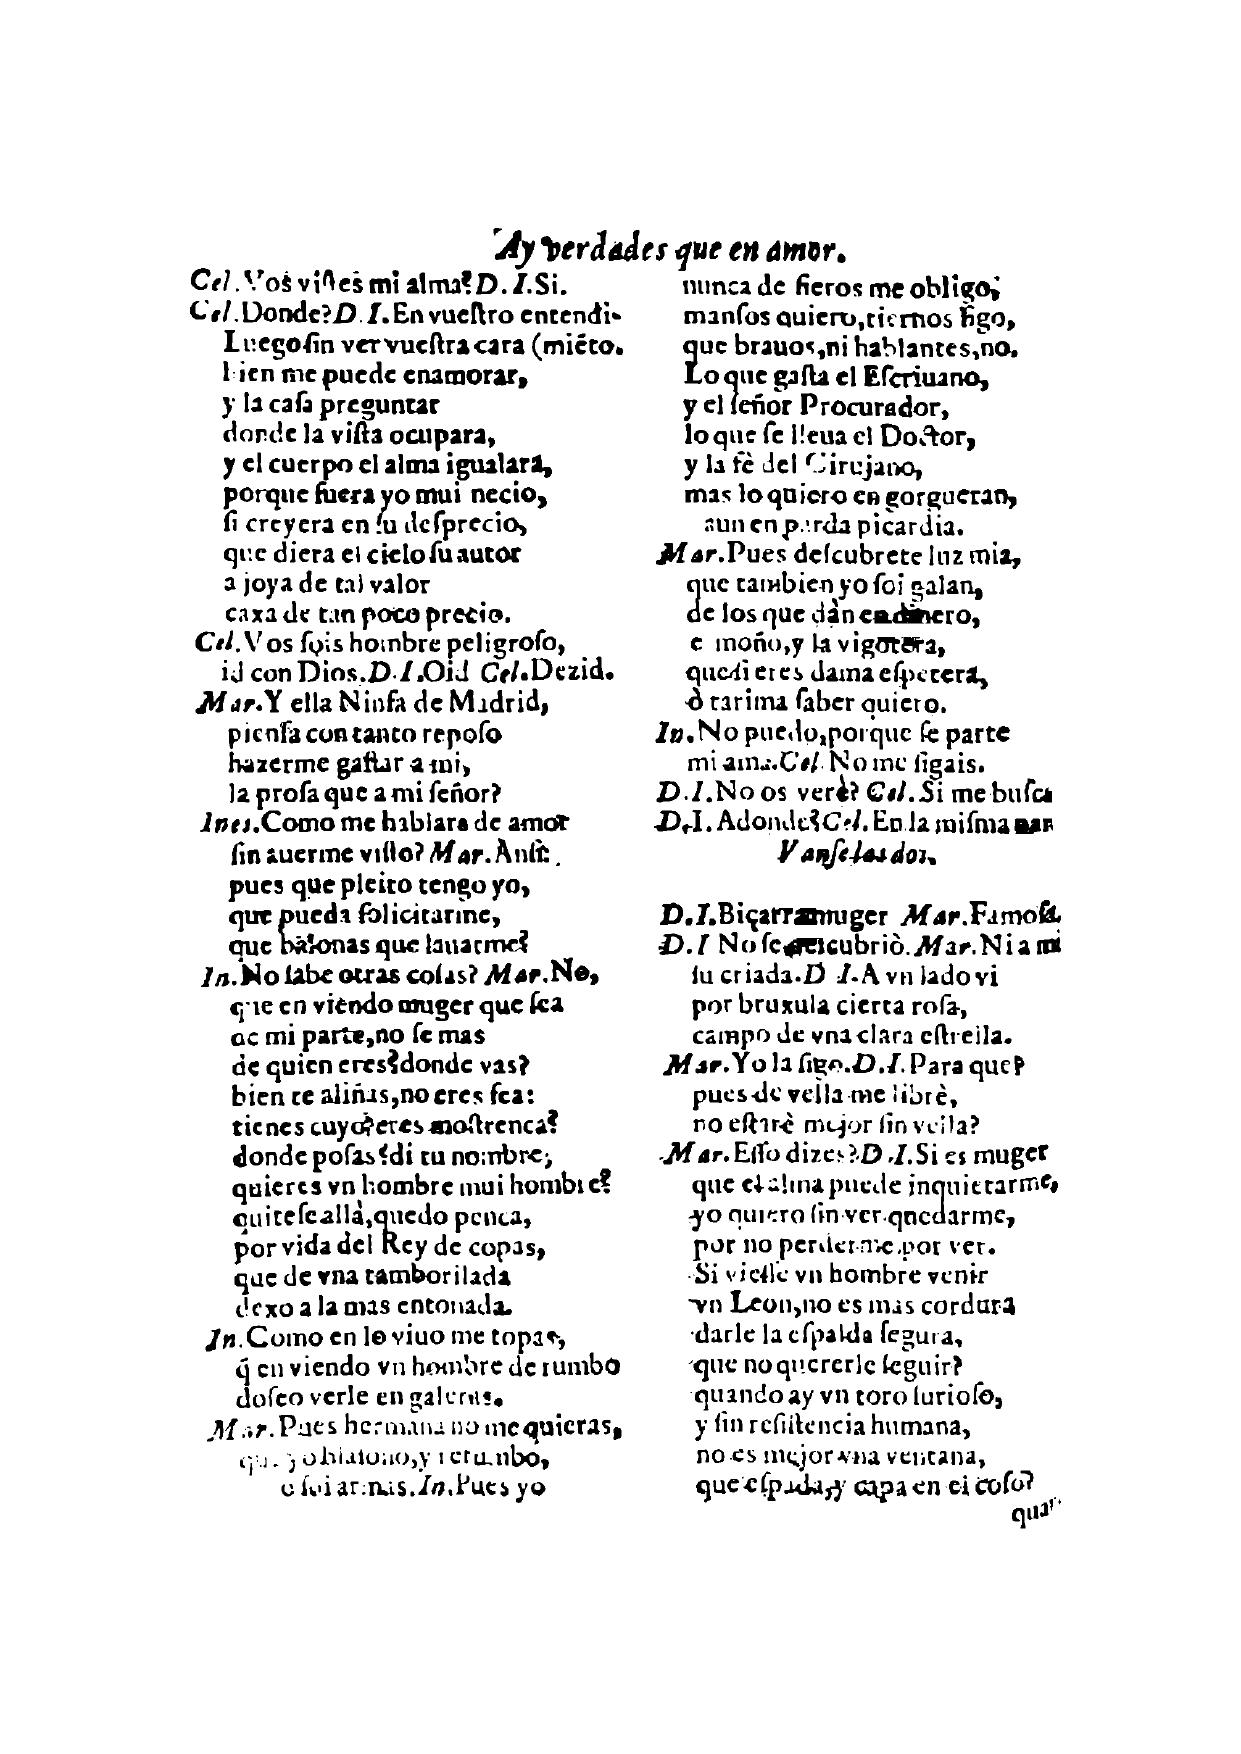 Ay verdades que en amor.
Cel. Vos vistes mi alma? D. I. Si.
Cel. Donde? D. I. En vuestro entendi-
Luego sin ver vuestra cara (miẽto.
bien me puede enamorar,
y la casa preguntar
donde la vista ocupara,
y el cuerpo el alma igualara,
porque fuera yo mui necio,
si creyera en su desprecio,
que diera el cielo su autor
a joya de tal valor
caxa de tan poco precio.
Cel. Vos sois hombre peligroso,
id con Dios. D. I. Oid Cel. Dezid.
Mar. Y ella Ninfa de Madrid,
piensa con tanto reposo
hazerme gastar a mi,
la prosa que a mi señor?
Ines. Como me hablara de amor
sin auerme visto? Mar. Ansi:
pues que pleito tengo yo,
que pueda solicitarme,
que balonas que lauarme?
In. No sabe otras cosas? Mar. No,
que en viendo muger que sea
de mi parte, no se mas
de quien eres? donde vas?
bien te aliñas, no eres fea:
tienes cuyo? eres mostrenca?
donde posas? di tu nombre;
quieres vn hombre mui hombre?
quitese allà, quedo penca,
por vida del Rey de copas,
que de vna tamborilada
dexo a la mas entonada.
In. Como en lo viuo me topas,
q̃ en viendo vn hombre de rumbo
doseo verle en galeras.
Mar. Pues hermana no me quieras,
que yo blasono, y retumbo,
o soi armas. In. Pues yo
nunca de fieros me obligo;
mansos quiero, tiernos sigo,
que brauos, ni hablantes, no.
Lo que gasta el Escriuano,
y el señor Procurador,
lo que se lleua el Doctor,
y la fè del Cirujano,
mas lo quiero en gorgueran,
aun en parda picardia.
Mar. Pues descubrete luz mia,
que tambien yo soi galan,
de los que dàn en dinero,
e moño, y la vigotera,
que si eres dama espetera,
ò tarima saber quiero.
In. No puedo, porque se parte
mi ama. Cel. No me sigais.
D. I. No os verè? Cel. Si me busca
D. I. Adonde? Cel. En la misma par
Vanse las dos.
D. I. Biçarra muger Mar. Famosa.
D. I No se descubriò. Mar. Ni a mi
su criada. D I. A vn lado vi
por bruxula cierta rosa,
campo de vna clara estrella.
Mar. Yo la sigo. D. I. Para que?
pues de vella me librè,
no estarè mejor sin vella?
Mar. Esso dizes? D. I. Si es muger
que el alma puede inquietarme,
yo quiero sin ver quedarme,
por no perderme por ver.
Si viesse vn hombre venir
vn Leon, no es mas cordura
darle la espalda segura,
que no quererle seguir?
quando ay vn toro furioso,
y sin resistencia humana,
no es mejor vna ventana,
que espada, y capa en el coso?
quar